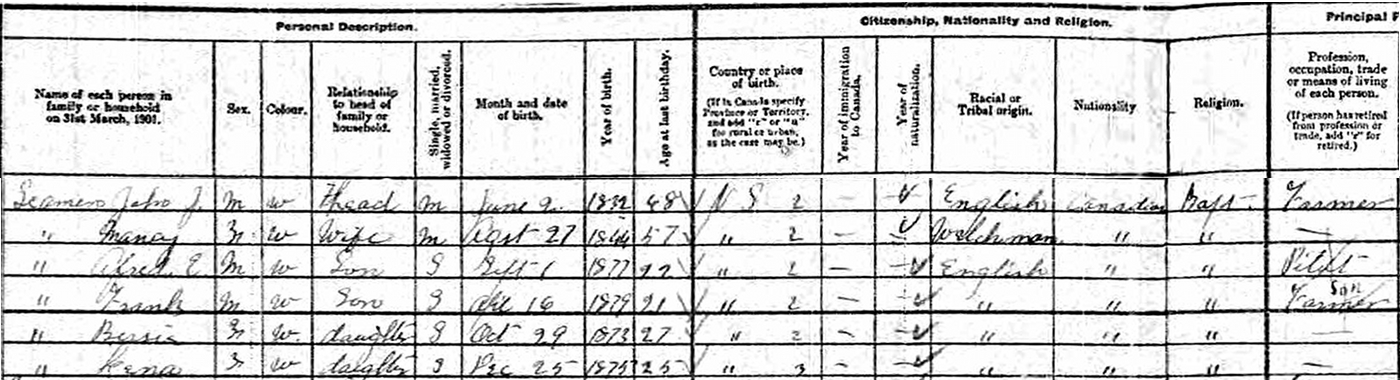 Personal Description. Citizenship, Nationality and Religion. Principal
Name of each person in family or household on 31st March, 1901. Sex. Colour. Relationship to head of family or household. Single, married, widowed or divorced. Month and date of birth. Year of birth. Age at last birthday. Country or place of birth. (If in Canada specify Province or Territory, and add "r" or "u" for rural or urban, as the case may be.) Year of immigration to Canada. Year of naturalization. Racial or Tribal origin. Nationality Religion. Profession, occupation, trade or means of living of each person. (If person has retired from profession or trade, add "r" for retired.)
John J. M w Head M June 2 1832 68 N S 2 — English Canadian Bapt. Farmer
" w Wife M 27 57 " 2 — Welchman " " —
" Alfred E M w Son S Sept 1 1877 22 " 2 — English " " Pilot
" Frank M w Son S 16 1879 21 " 2 — " " " Farmer Son
" Bessie w. daughter S Oct 29 1873 27 " 2 — " " " —
" Lena w daughter S Dec 25 1875 25 " — " " —